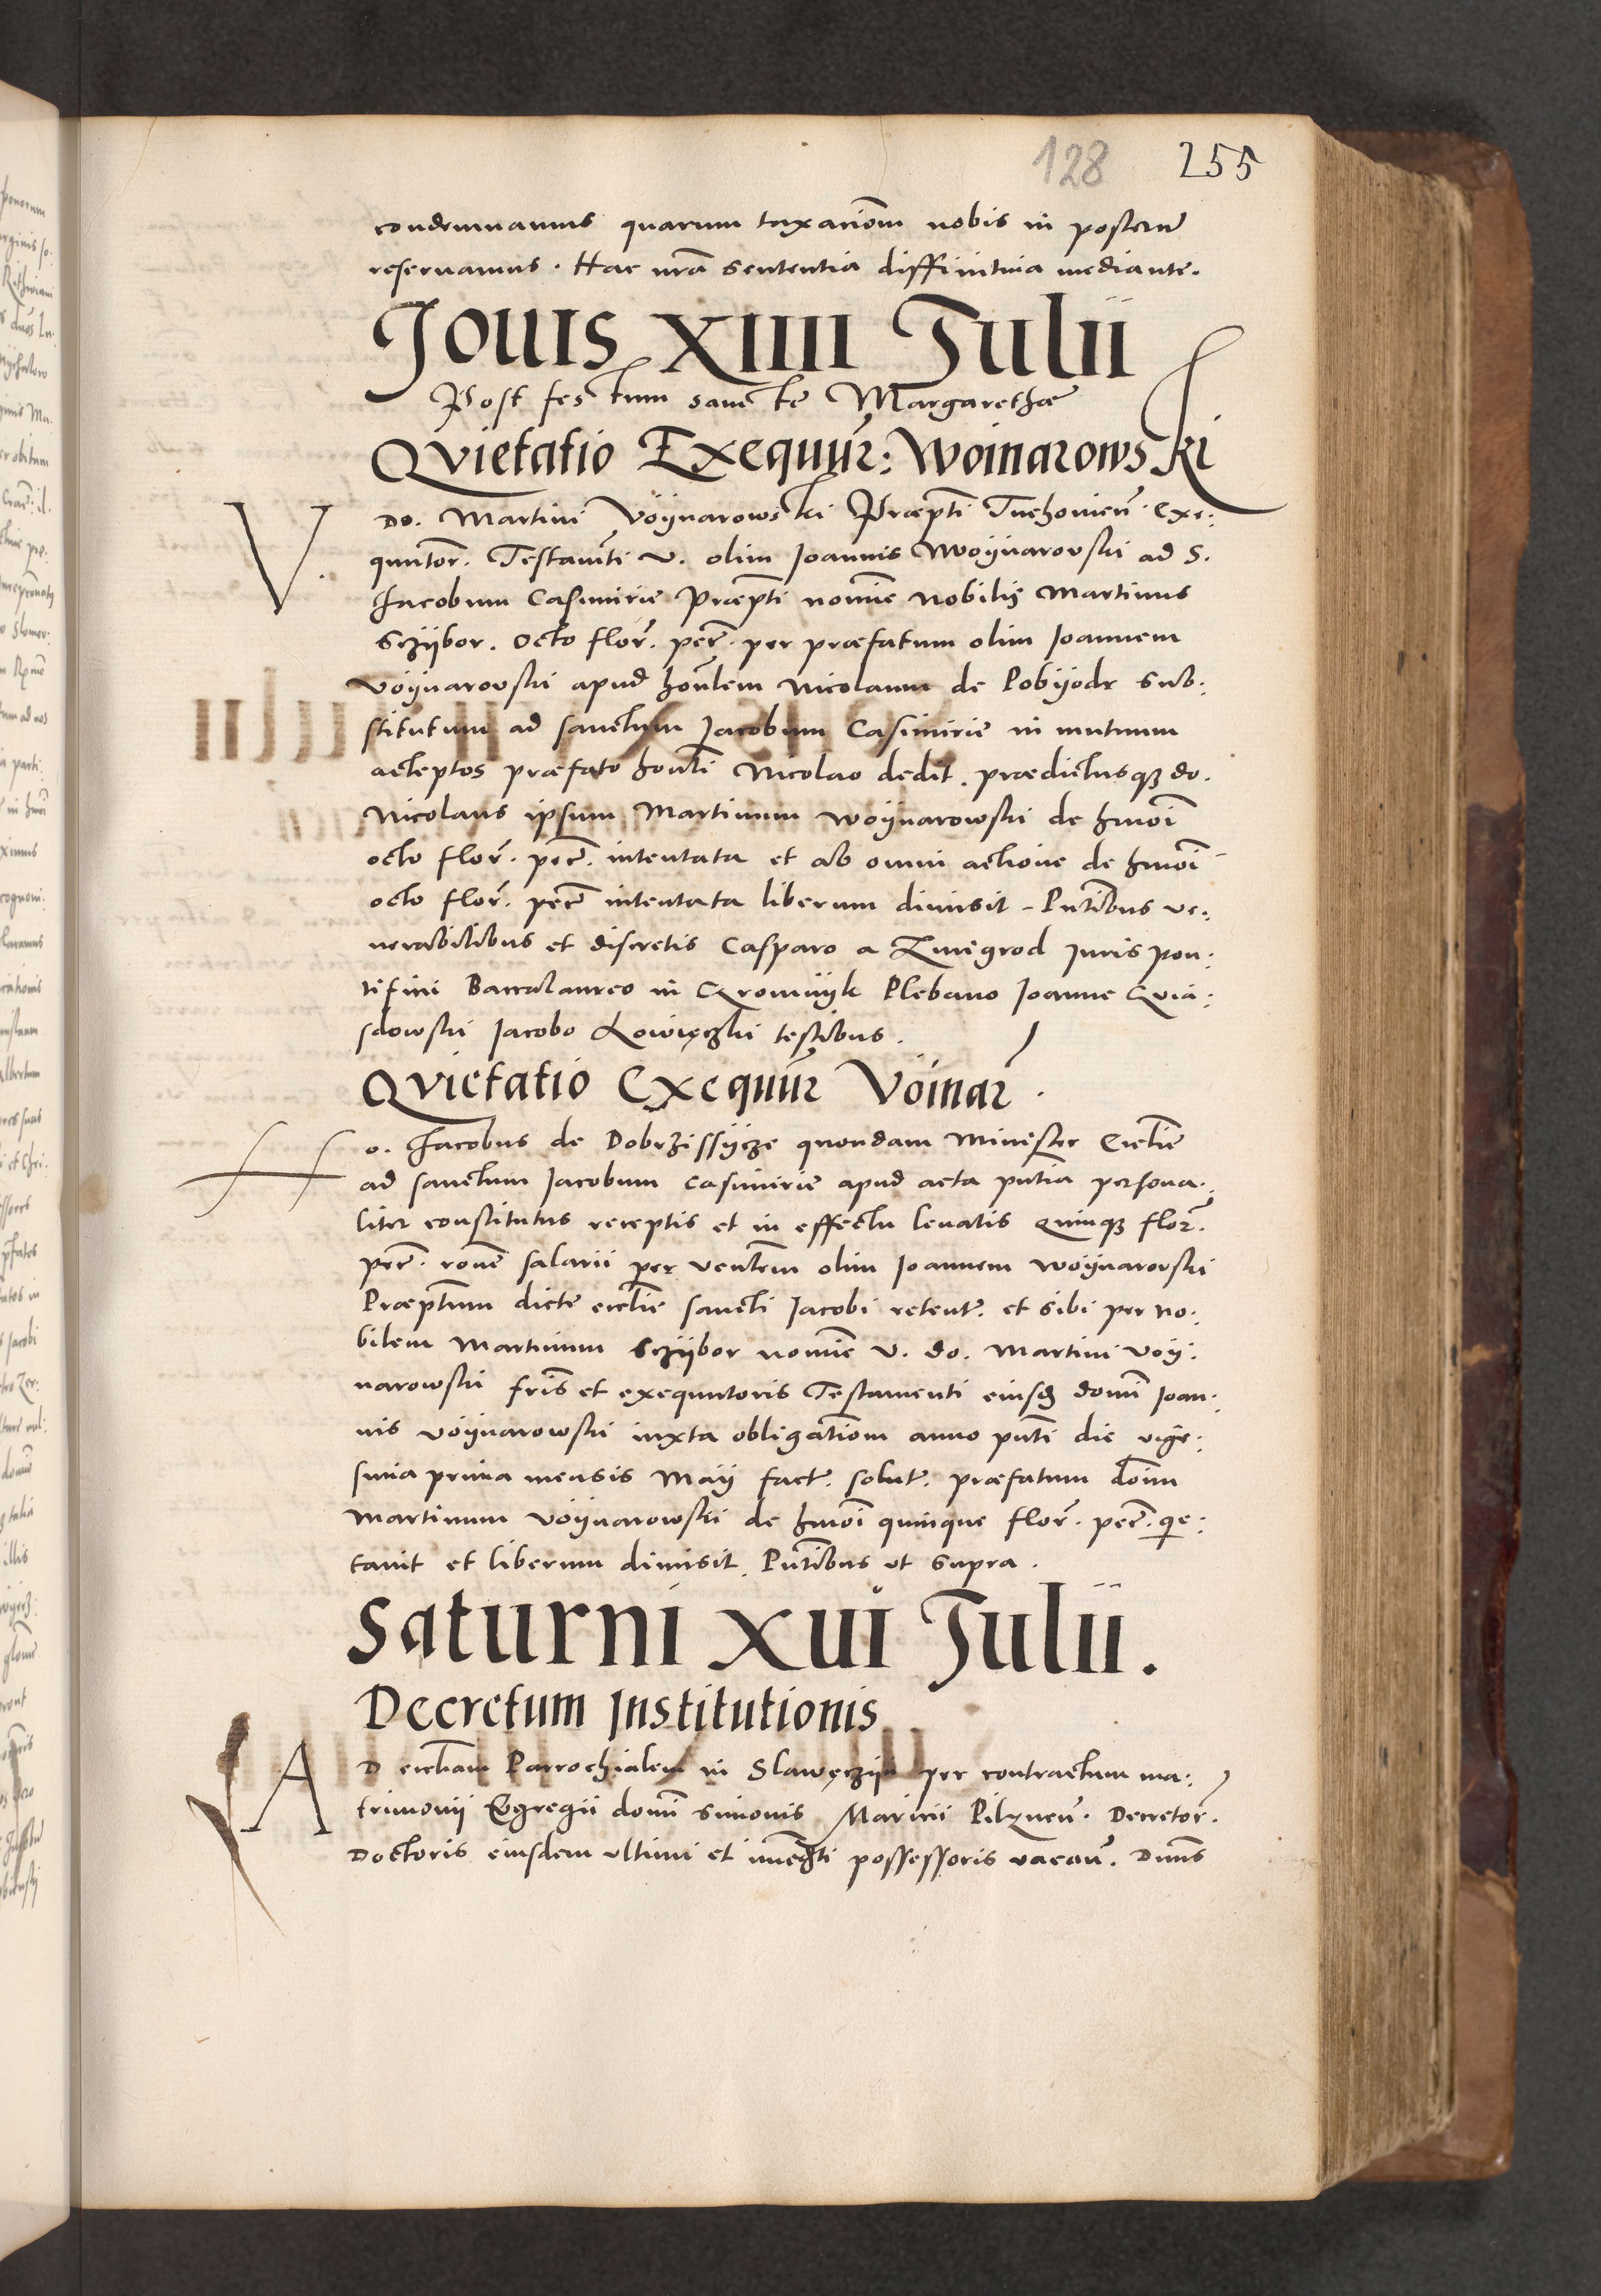 128 255
condemnamus quarum taxacioem nobis in posterum
reseruamus. Hac nrã sententia diffinitiua mediante.
Jouis XIIII Julii
Post festum sanctę Margarethæ
Qvietatio Exequūr: Woinarowski
V. Do. Martini Voÿnarowski Præpti Tuchouien̄. Exe:
quutor. Testamēti V. olim Joannis Woÿnarouski ad S.
Jacobum Casimirię Præpti nomīe nobilis Martinus
Sczÿbor. Octo flor̄. pec̄. per præfatum olim Joannem
Voÿnarouski apud honīlem Nicolaum de Pobÿodr Sub:
stitutum ad sanctum Jacobum Casimirię in mutuum
acceptos præfato honīli Nicolao dedit. prædictusqȝ do.
Nicolaus ipsum Martinum Woÿnarowski de hmoī
octo flor̄. pec̄. intentata et ab omni actione de hmoī
octo flor̄. pec̄ intentata liberum dimisit. Pntībus ve:
nerabilibus et discretis Casparo a Zmigrod Juris pon:
tificii Baccalaureo in Cz Plebano Joanne Gvia:
sdowski Jacobo Lowięczki testibus.
Qvietatio Exequūr Voinar̄.
Ho. Jacobus de Dobrzissÿcze quondam Minister Ecclīę
ad sanctum Jacobum Casimirię apud acta pntia persona:
liter constitutus receptis et in effectu leuatis quinqȝ flor̄.
pec̄. ronē salarii per Ventēm olim Joannem Woÿnarouski
Præptum dictę ecclīę sancti Jacobi retent. et sibi per no:
bilem Martinum Sczÿbor nomīe V. do. Martini Voÿ:
narowski fris et exequutoris Testamenti eiusd domī Joan:
nis Voÿnarowski iuxta obligatiōem anno pntī die vige:
sima prima mensis Maÿ fact. solut. præfatum dom̄
Martinum Voÿnarowski de hmoī quinque flor̄. pec̄. qie:
tauit et liberum dimisit. Pntībus ut supra.
Saturni XVI Julii.
Decretum Institutionis
AD ecclīam Parrochialem in Slawęczÿn per contractum ma:
trimonii Egregii domī Simonis Maricii Pilznen̄. Decretor̄.
Doctoris eiusdem ultimi et possessoris vacan̄. Dnūs